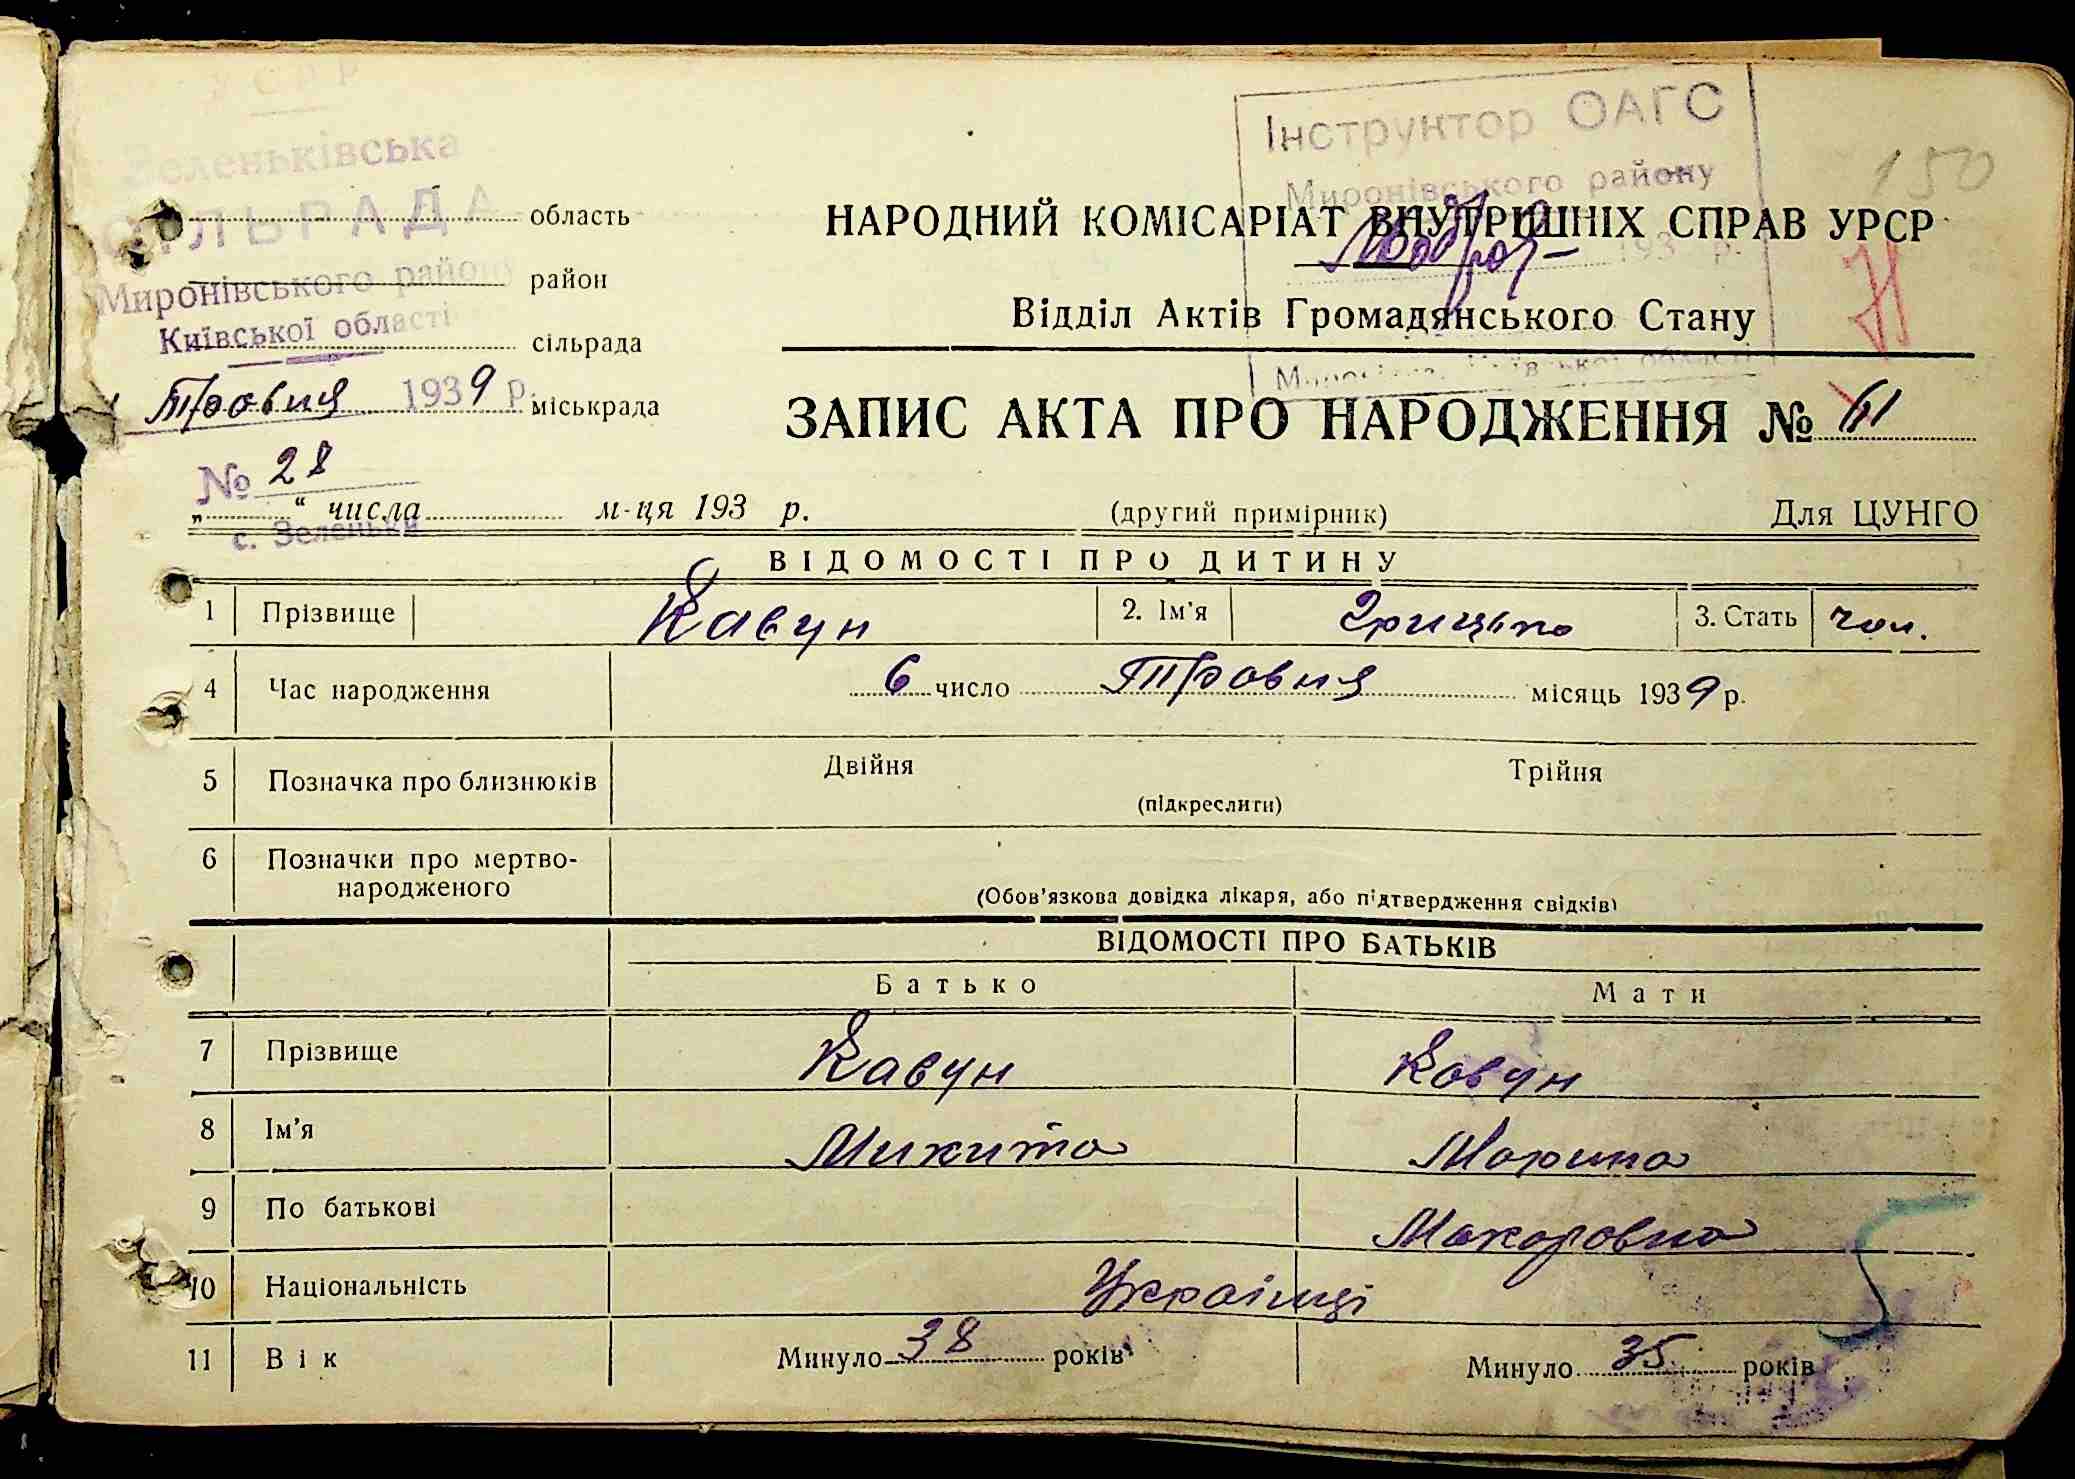 УСРР
Зеленьківська
СІЛЬРАДА
Миронівського району
Київської області
Травня 1939 р.
№ 28
с. Зеленьки
область
район
сільрада
міськрада
„ “ числа м-ця 193 р.
Інструктор ОАГС
Миронівського району
193 р.
150
НАРОДНИЙ КОМІСАРІАТ ВНУТРІШНІХ СПРАВ УРСР
Відділ Актів Громадянського Стану
ЗАПИС АКТА ПРО НАРОДЖЕННЯ №
(другий примірник) Для ЦУНГО
ВІДОМОСТІ ПРО ДИТИНУ
1 Прізвище Кавун 2. Ім'я Грицько 3. Стать чол.
4 Час народження 6 число Травня місяць 1939 р.
5 Позначка про близнюків Двійня Трійня
(підкреслити)
6 Позначки про мертво-
народженого
(Обов'язкова довідка лікаря, або підтвердження свідків)
ВІДОМОСТІ ПРО БАТЬКІВ
Батько Мати
7 Прізвище Кавун Кавун
8 Ім'я Микита Марина
9 По батькові Макаровна
10 Національність Українці
11 Вік Минуло 38 років Минуло 35 років